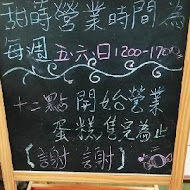 甜蒔營業時間為
每週五.六.日1200-1700
十二點開始營業
蛋糕售完為止
{謝謝}